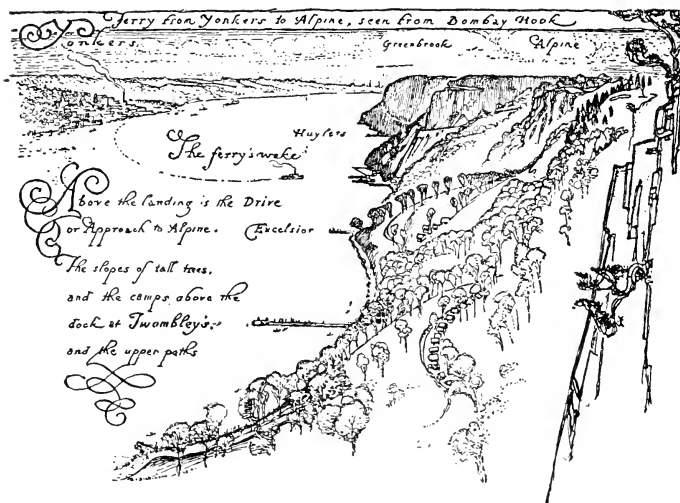 Ferry from Yonkers to Alpine, seen from Bombay Hook
Yonkers
Greenbrook
Alpine
Huylers
The ferry's wake
Above the landing is the Drive
or Approach to Alpine.
Excelsior
The slopes of tall trees,
and the camps above the
dock at Twombley's,
and the upper paths